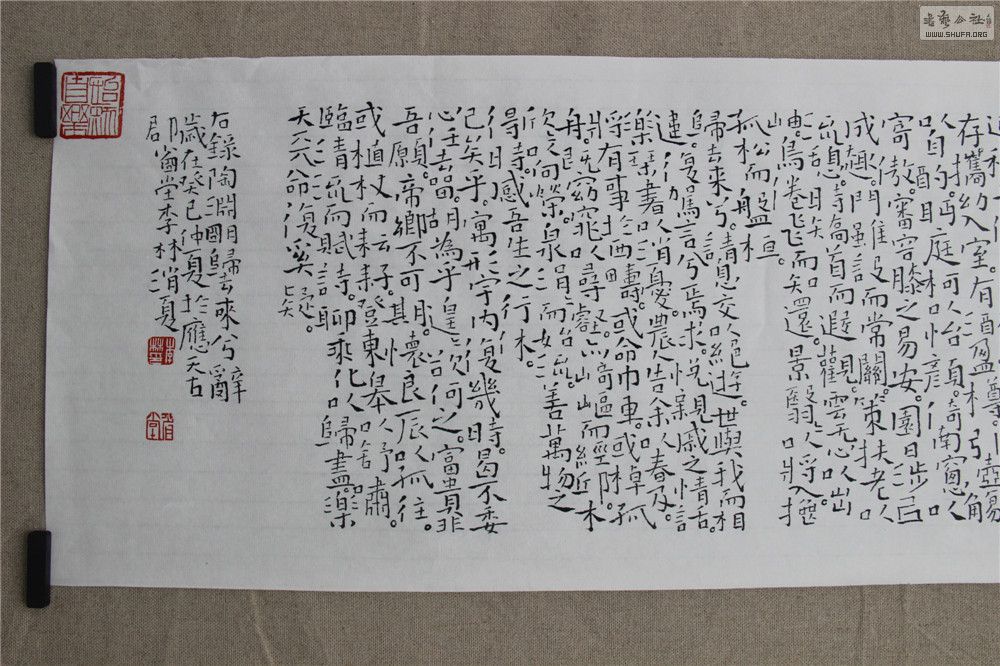 存携幼入室。有酒盈尊。引壺觴
以自酌。眄庭柯以怡顏。倚南窗以
寄傲。審容膝之易安。園日涉以
成趣。門雖設而常關。策扶老以
流憩。時矯首而遐觀。雲无心以出
岫。鳥倦飛而知還。景翳翳以將入。撫
孤松而盤桓。
歸去來兮。請息交以絕遊。世與我而相
違。復駕言兮焉求。悅親戚之情話。
樂琴書以消憂。農人告余以春及。
將有事於西疇。或命巾車。或棹孤
舟。既窈窕以尋壑。亦崎嶇而經丘。木
欣欣而向榮。泉涓涓而始流。善萬物之
得時。感吾生之行休。
已矣乎。寓形宇内復幾時。曷不委
心任去留。胡為乎遑遑欲何之。富貴非
吾願。帝鄉不可期。懷良辰以孤往。
或植杖而耘耔。登東皋以舒嘯。
臨清流而賦詩。聊乘化以歸盡。樂
夫天命復奚疑。
右錄陶淵明歸去來兮辭
歲在癸巳仲夏於應天古
郡齒堂李林消夏
WWW.SHUFA.ORG